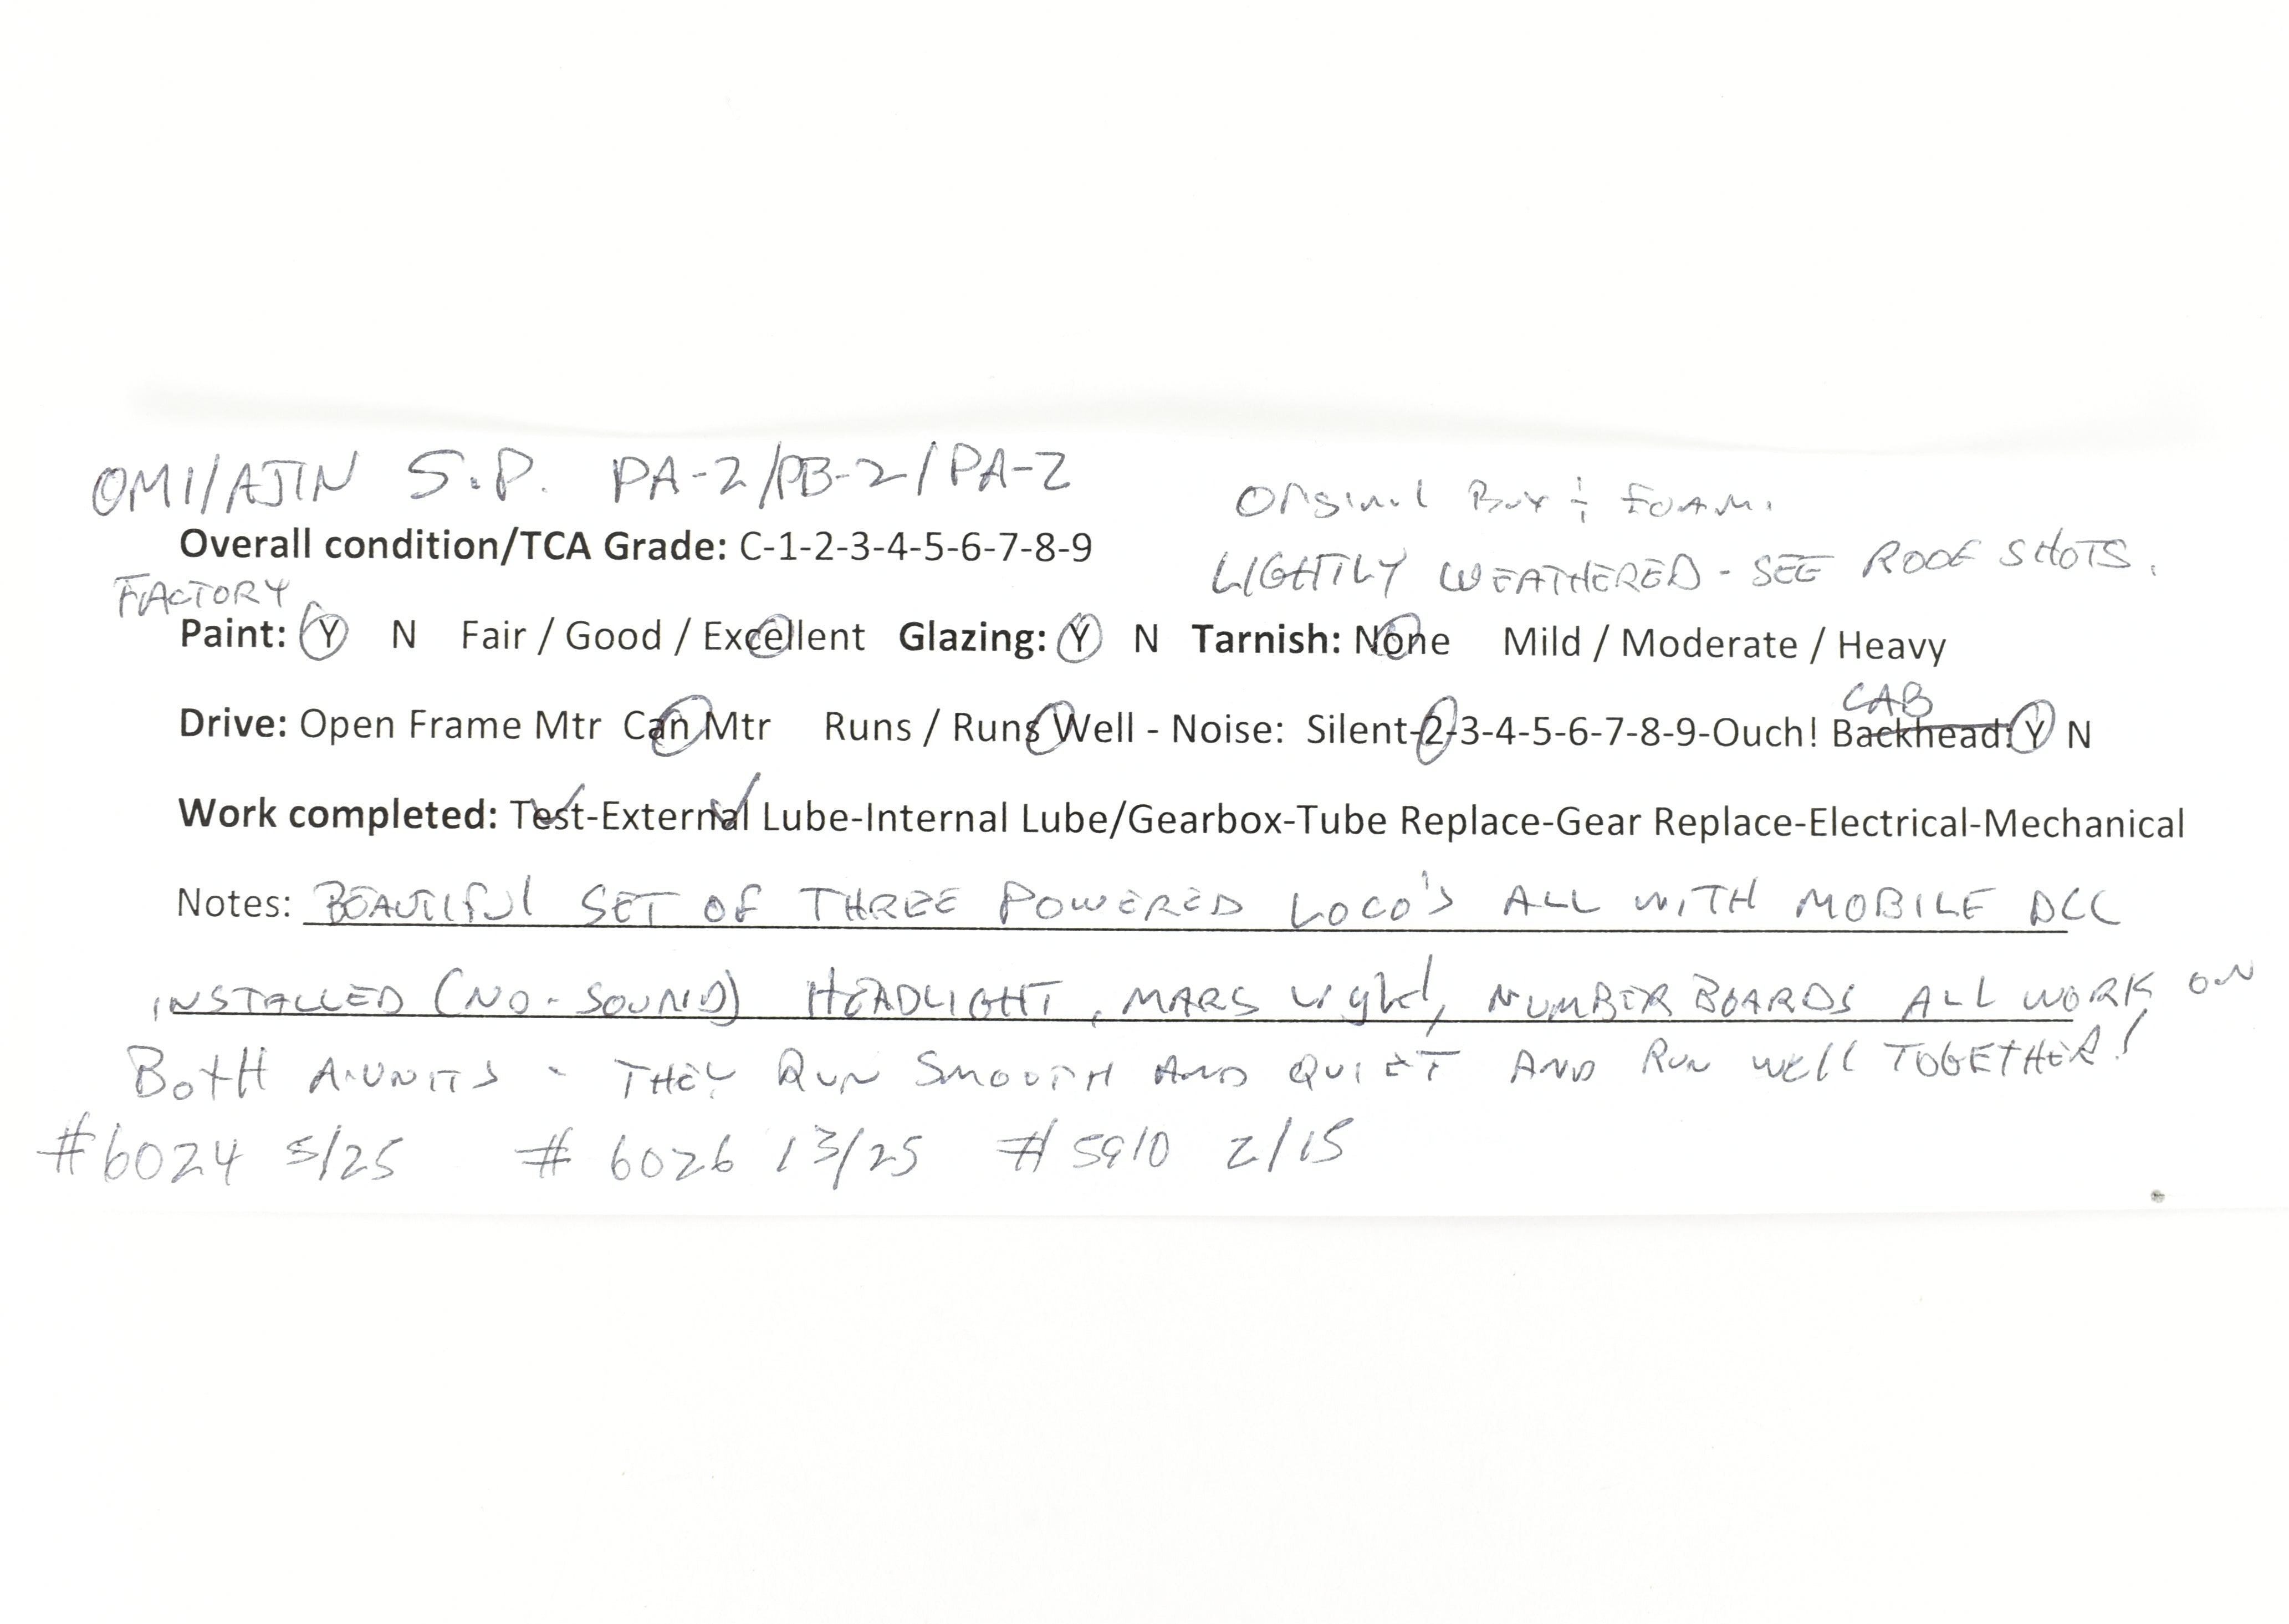 OMI/AJIN S.P. PA-2/PB-2/PA-2
Original Box & Foam.
Overall condition/TCA Grade: C-1-2-3-4-5-6-7-8-9
LIGHTLY WEATHERED - SEE ROOF SHOTS.
FACTORY
Paint: Y N Fair / Good / Excellent Glazing: Y N Tarnish: None Mild / Moderate / Heavy
CAB
Drive: Open Frame Mtr Can Mtr Runs / Runs Well - Noise: Silent-2-3-4-5-6-7-8-9-Ouch! Backhead: Y N
Work completed: Test-External Lube-Internal Lube/Gearbox-Tube Replace-Gear Replace-Electrical-Mechanical
Notes: BEAUTIFUL SET OF THREE POWERED LOCO'S ALL WITH MOBILE DCC
INSTALLED (NO-SOUND) HEADLIGHT, MARS light, NUMBER BOARDS ALL WORK ON
BOTH A-UNITS - THEY RUN SMOOTH AND QUIET AND RUN WELL TOGETHER!
#6024 5/25 # 6026 13/25 # 5910 2/15